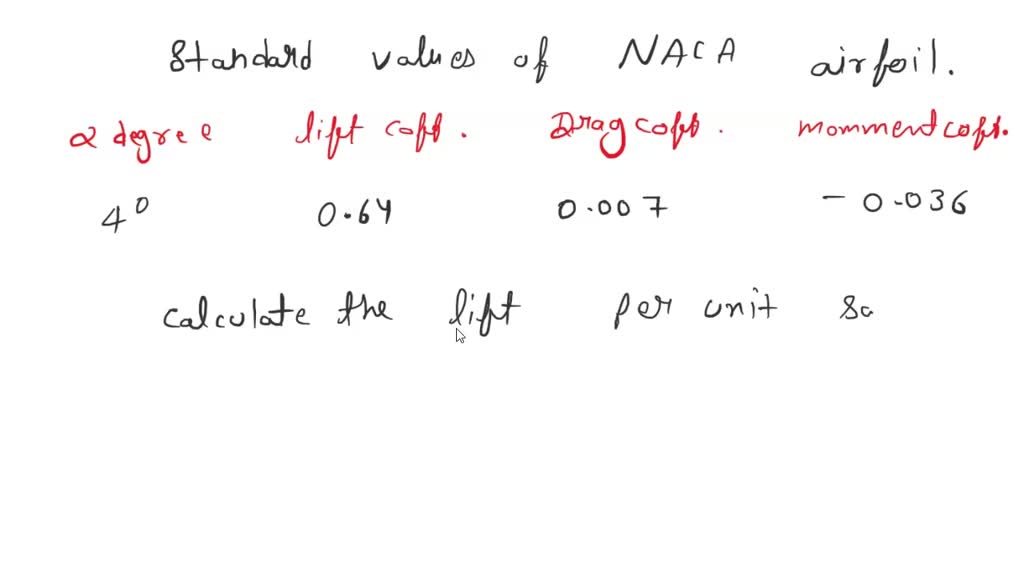 Standard values of NACA airfoil.
α degree lift coff. Drag coff. mommend coft.
4° 0.64 0.007 -0.036
calculate the lift per unit sc